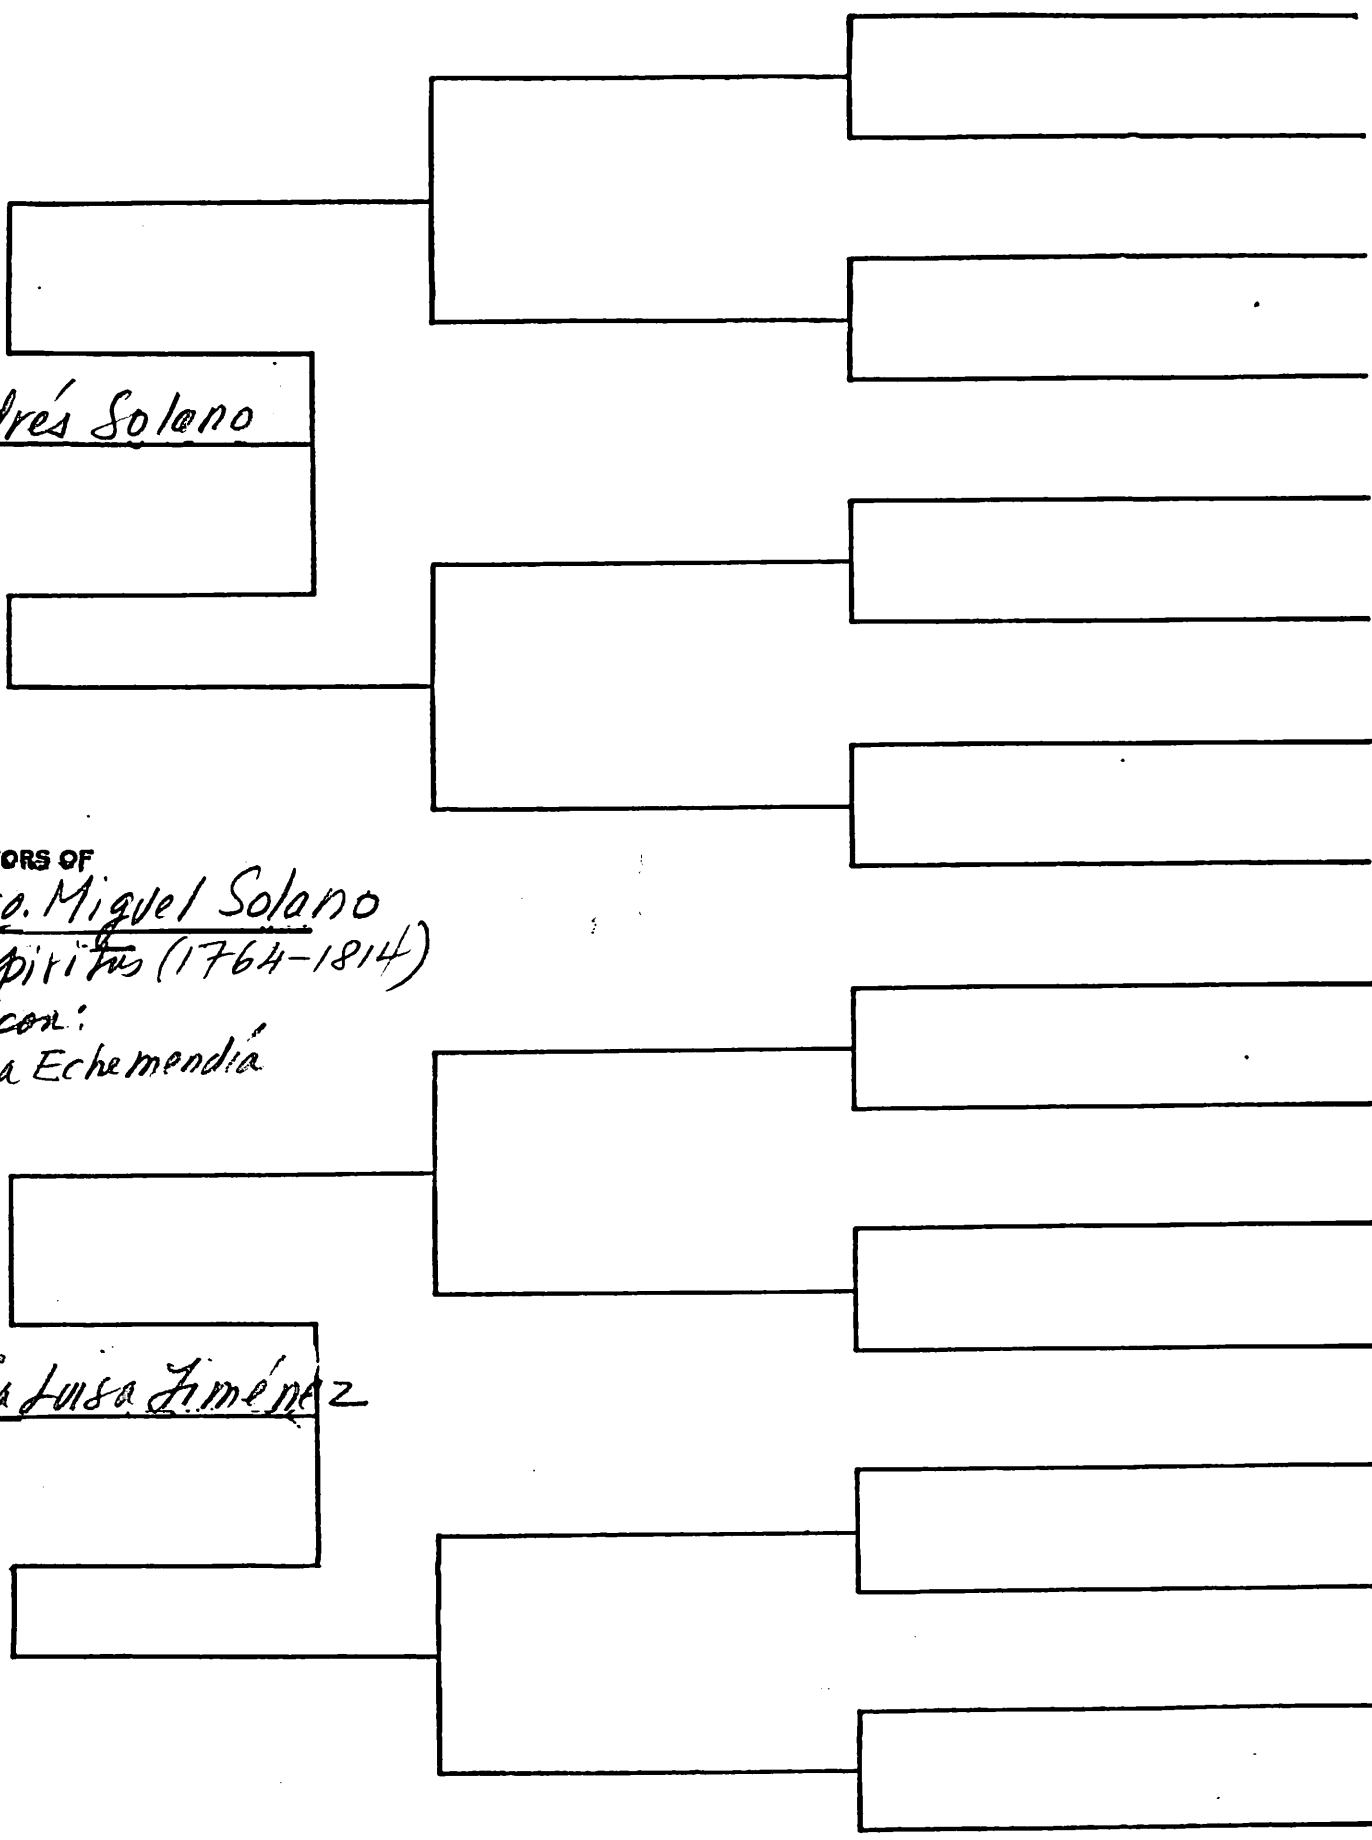 drés Solano
TORS OF
co. Miguel Solano
spiritus (1764-1814)
con:
a Echemendía
ía Luisa Jiménez